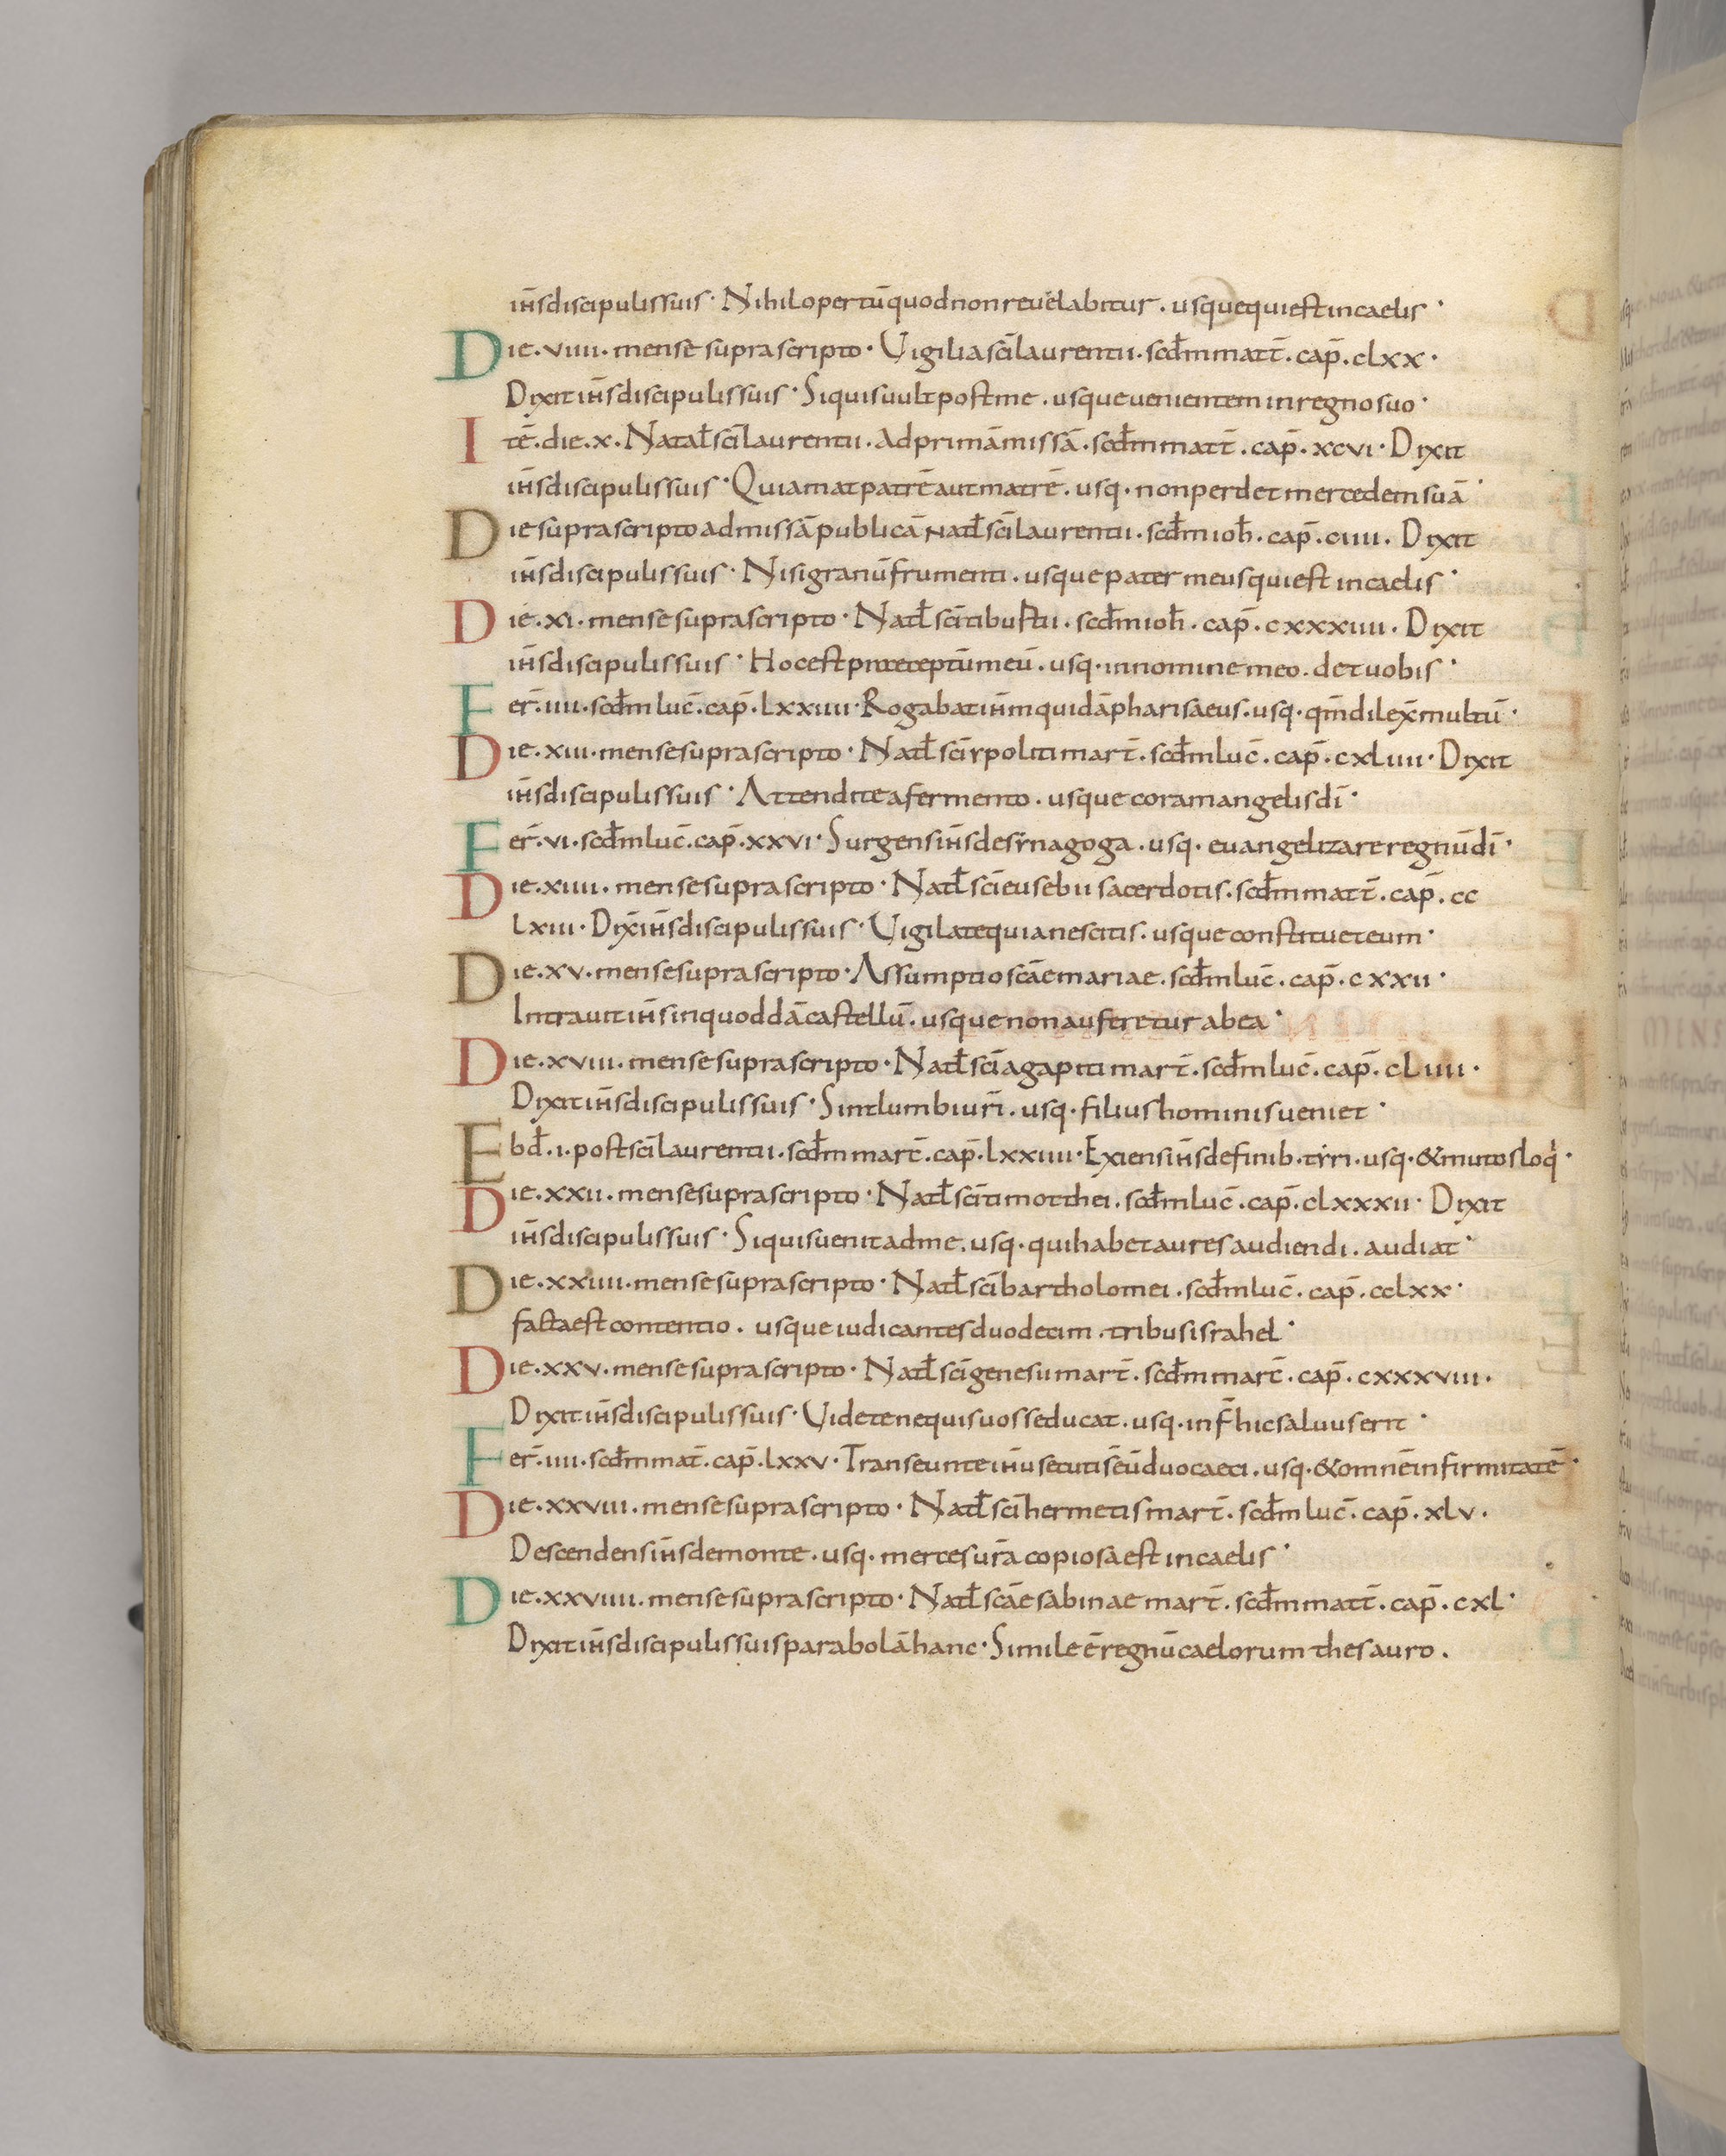 ih̅s discipulis suis · Nihil opertū quod non reuelabitur . usque qui est in caelis ·
Die . viiii . mense suprascripto · Uigilia sc̅i laurentii . scd̅m matt̅ . cap̅ . clxx ·
Dixit ih̅s discipulis suis · Si quis uult post me . usque uenientem in regno suo ·
Itē . die . x . Natal̅ sc̅i laurentii . ad primā missā . scd̅m matt̅ . cap̅ . xcvi · Dixit
ih̅s discipulis suis · Qui amat patrē aut matrē . usq · non perdet mercedem suā ·
Die suprascripto ad missā publicā natl̅ sc̅i laurentii . scd̅m ioh̅ . cap̅ . ciiii . Dixit
ih̅s discipulis suis · Nisi granū frumenti . usque pater meus qui est in caelis ·
Die . xi . mense suprascripto · Natl̅ sc̅i tiburtii . scd̅m ioh̅ . cap̅ . cxxxiiii . Dixit
ih̅s discipulis suis · Hoc est praeceptū meū . usq · in nomine meo . det uobis ·
Fer̅ . iiii . scd̅m luc̅ . cap̅ . lxxiiii · Rogabat ih̅m quidā pharisaeus . usq · qm̅ dilex̅ multū ·
Die . xiii . mense suprascripto · Natl̅ sc̅i ypoliti mart̅ . scd̅m luc̅ . cap̅ . cxliiii · Dixit
ih̅s discipulis suis · Attendite a fermento . usque coram angelis dī ·
Fer̅ . vi . scd̅m luc̅ . cap̅ . xxvi · Surgens ih̅s de synagoga . usq · euangelizare regnū dī ·
Die . xiiii . mense suprascripto · Natl̅ sc̅i eusebii sacerdotis . scd̅m matt̅ . cap̅ . cc
lxiii · Dix̅ ih̅s discipulis suis · Uigilate quia nescitis . usque constituet eum ·
Die . xv . mense suprascripto · Assumptio sc̅ae mariae . scd̅m luc̅ . cap̅ . cxxii ·
Intrauit ih̅s in quoddā castellū . usque non auferetur ab ea ·
Die . xviii . mense suprascripto · Natl̅ sc̅i agapiti mart̅ . scd̅m luc̅ . cap̅ . cliiii ·
Dixit ih̅s discipulis suis · Sint lumbi ur̅i . usq · filius hominis ueniet ·
Ebd̅ . i . post sc̅i laurentii . scd̅m marc̅ . cap̅ . lxxiiii · Exiens ih̅s de finib . tyri . usq · & mutos loqi ·
Die . xxii . mense suprascripto · Natl̅ sc̅i timotthei . scd̅m luc̅ . cap̅ . clxxxii · Dixit
ih̅s discipulis suis · Si quis uenit ad me . usq · qui habet aures audiendi . audiat ·
Die . xxiiii . mense suprascripto · Natl̅ sc̅i bartholomei . scd̅m luc̅ . cap̅ . cclxx ·
facta est contentio . usque iudicantes duodecim . tribus israhel ·
Die . xxv . mense suprascripto · Natl̅ sc̅i genesii mart̅ . scd̅m marc̅ . cap̅ . cxxxviii .
Dixit ih̅s discipulis suis · Uidete ne quis uos seducat . usq · in f̅ hic saluus erit ·
Fer̅ . iiii . scd̅m mat̅ . cap̅ . lxxv · Transeunte ih̅u secuti s̅ eū duo caeci . usq · & omnē infirmitatē ·
Die . xxviii . mense suprascripto · Natl̅ sc̅i hermetis mart̅ . scd̅m luc̅ . cap̅ . xlv .
Descendens ih̅s de monte . usq · merces ur̅a copiosa est in caelis ·
Die . xxviiii . mense suprascripto · Natl̅ sc̅ae sabinae mart̅ . scd̅m matt̅ . cap̅ . cxl ·
Dixit ih̅s discipulis suis parabolā hanc · Simile ē regnū caelorum thesauro .